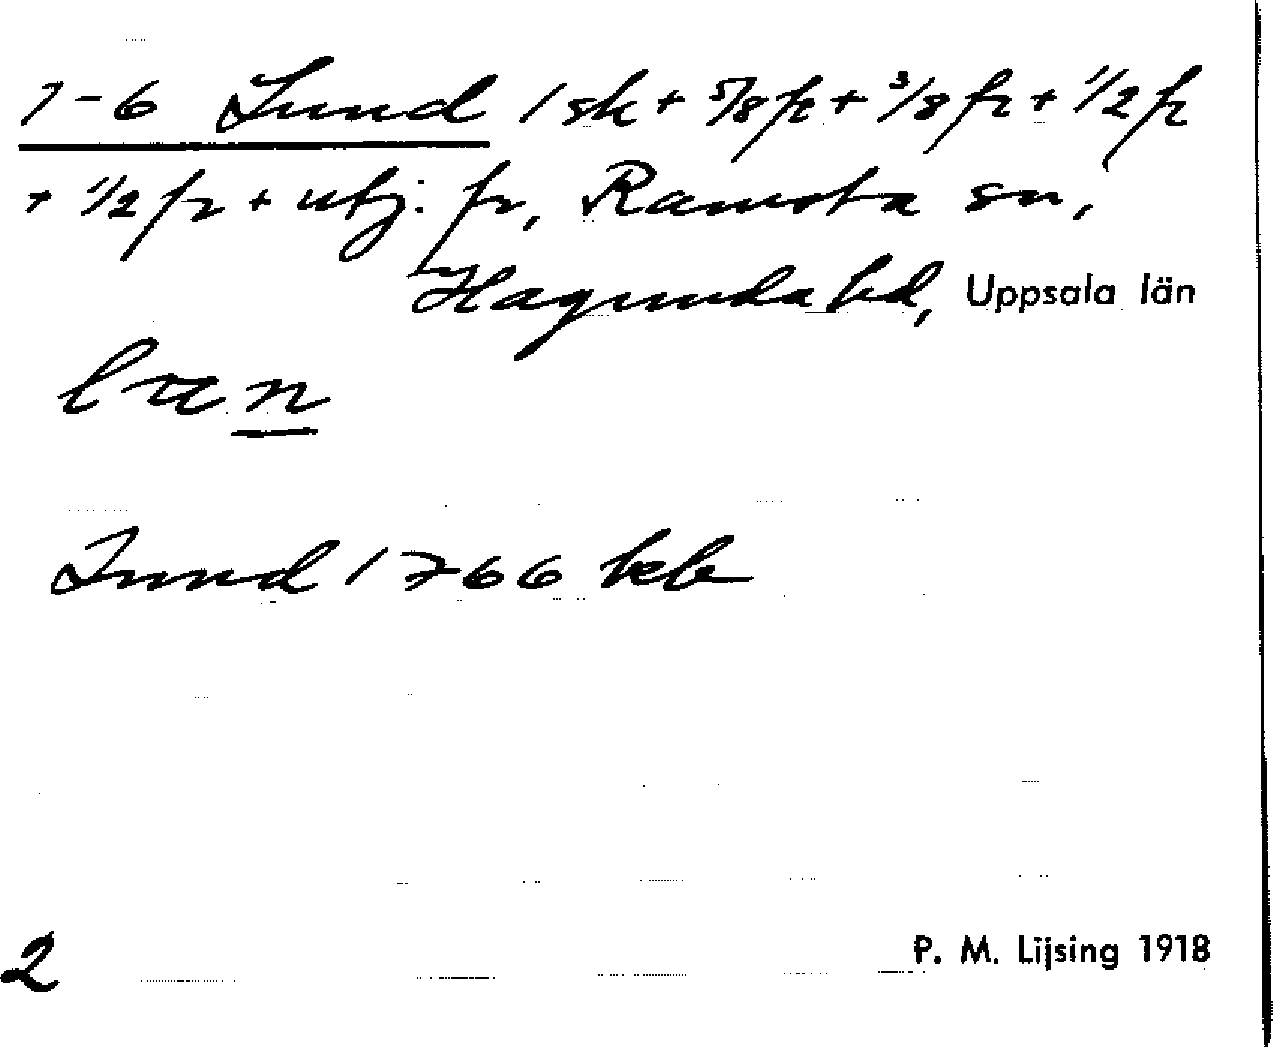 1-6 Lund 1 sk + 5/8 fr + 3/8 fr + 1/2 fr
+ 1/2 fr + utj. fr, Ramsta sn,
Hagunda hd, Uppsala län
Lund 1766 beb
2
P. M. Lijsing 1918